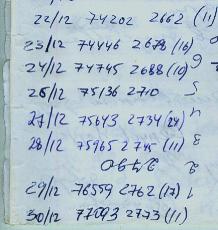 22/12 74202 2662 (11)
23/12 74446 2678 (16)
24/12 74745 2688 (10) 6
26/12 75136 2710 5
27/12 75643 2734 (24) 4
28/12 75965 2745 (11) 3
2
29/12 76559 2762 (17) 1
30/12 77093 2773 (11)